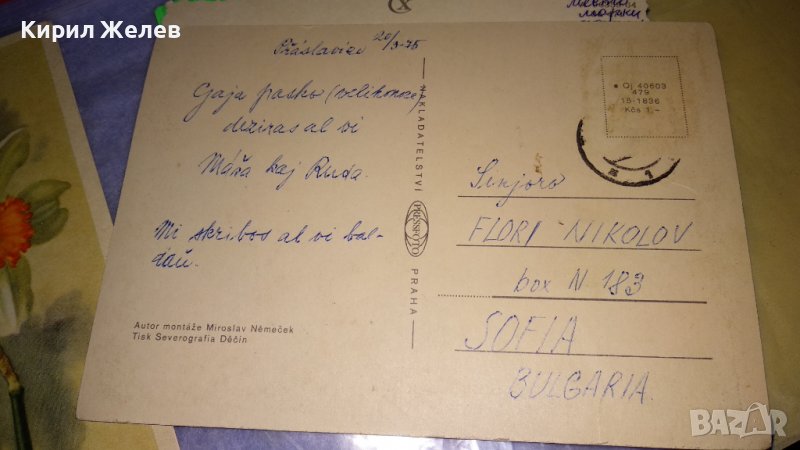 Кирил Желев
Přáslavice 20/3-75
Gaja pasko (velikonoce)
deziras al vi
Máša kaj Ruda.
Mi skribos al vi bal-
dáŭ.
Autor montáže Miroslav Němeček
Tisk Severografia Děčín
NAKLADATELSTVÍ
PRESSFOTO
PRAHA
Qj 40603
479
15-1836
Kčs 1,–
Sinjoro
FLORI NIKOLOV
box N 183
SOFIA
BULGARIA.
BAZAR